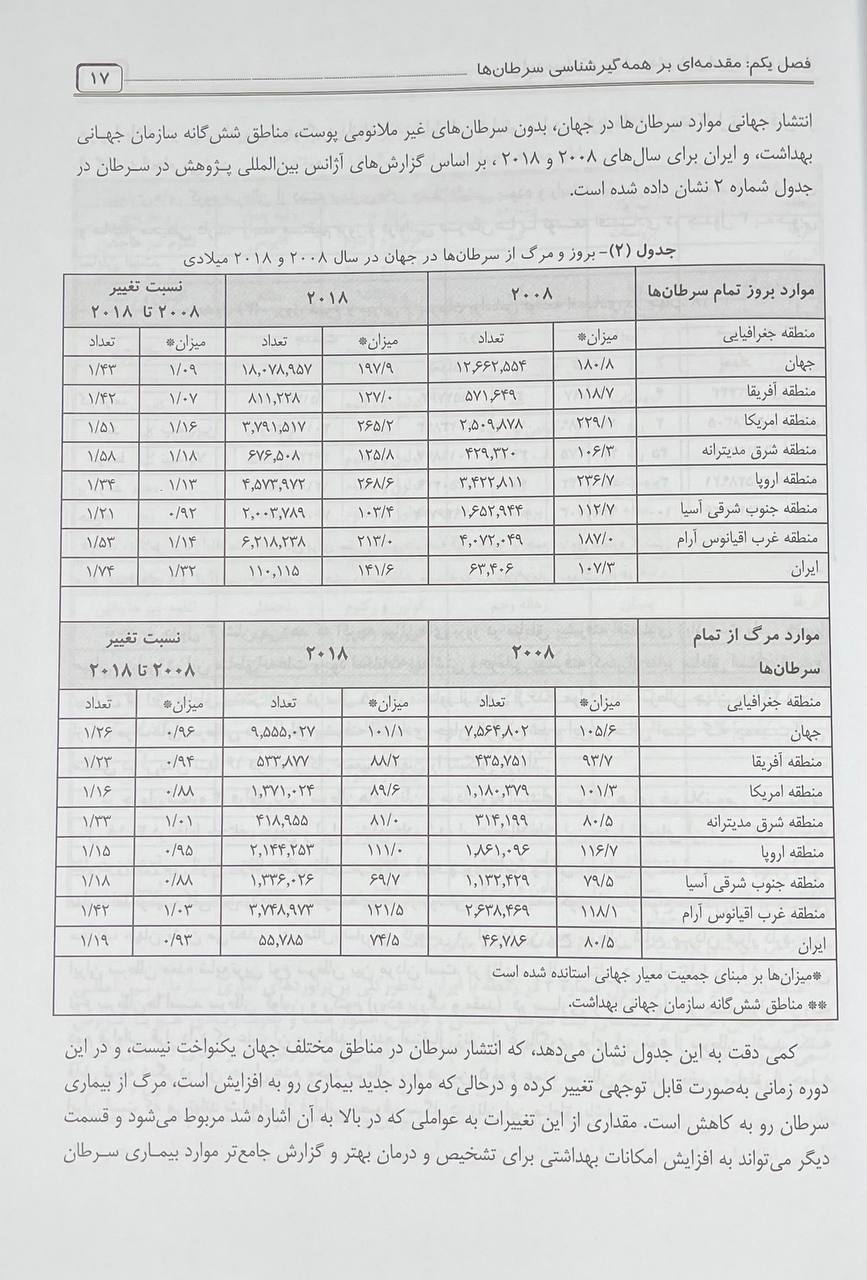 فصل یکم: مقدمه‌ای بر همه‌گیرشناسی سرطان‌ها ۱۷
انتشار جهانی موارد سرطان‌ها در جهان، بدون سرطان‌های غیر ملانومی پوست، مناطق شش‌گانه سازمان جهـانی
بهداشت، و ایران برای سال‌های ۲۰۰۸ و ۲۰۱۸ ، بر اساس گزارش‌های آژانس بین‌المللی پـژوهش در سـرطان در
جدول شماره ۲ نشان داده شده است.
جدول (۲)- بروز و مرگ از سرطان‌ها در جهان در سال ۲۰۰۸ و ۲۰۱۸ میلادی
موارد بروز تمام سرطان‌ها ۲۰۰۸ ۲۰۱۸ نسبت تغییر
۲۰۰۸ تا ۲۰۱۸
منطقه جغرافیایی میزان* تعداد میزان* تعداد میزان* تعداد
جهان ۱۸۰/۸ ۱۲,۶۶۲,۵۵۴ ۱۹۷/۹ ۱۸,۰۷۸,۹۵۷ ۱/۰۹ ۱/۴۳
منطقه آفریقا ۱۱۸/۷ ۵۷۱,۶۴۹ ۱۲۷/۰ ۸۱۱,۲۲۸ ۱/۰۷ ۱/۴۲
منطقه امریکا ۲۲۹/۱ ۲,۵۰۹,۸۷۸ ۲۶۵/۲ ۳,۷۹۱,۵۱۷ ۱/۱۶ ۱/۵۱
منطقه شرق مدیترانه ۱۰۶/۳ ۴۲۹,۳۲۰ ۱۲۵/۸ ۶۷۶,۵۰۸ ۱/۱۸ ۱/۵۸
منطقه اروپا ۲۳۶/۷ ۳,۴۲۲,۸۱۱ ۲۶۸/۶ ۴,۵۷۳,۹۷۲ ۱/۱۳ ۱/۳۴
منطقه جنوب شرقی آسیا ۱۱۲/۷ ۱,۶۵۲,۹۴۴ ۱۰۳/۴ ۲,۰۰۳,۷۸۹ ۰/۹۲ ۱/۲۱
منطقه غرب اقیانوس آرام ۱۸۷/۰ ۴,۰۷۲,۰۴۹ ۲۱۳/۰ ۶,۲۱۸,۲۳۸ ۱/۱۴ ۱/۵۳
ایران ۱۰۷/۳ ۶۳,۴۰۶ ۱۴۱/۶ ۱۱۰,۱۱۵ ۱/۳۲ ۱/۷۴
موارد مرگ از تمام
سرطان‌ها ۲۰۰۸ ۲۰۱۸ نسبت تغییر
۲۰۰۸ تا ۲۰۱۸
منطقه جغرافیایی میزان* تعداد میزان* تعداد میزان* تعداد
جهان ۱۰۵/۶ ۷,۵۶۴,۸۰۲ ۱۰۱/۱ ۹,۵۵۵,۰۲۷ ۰/۹۶ ۱/۲۶
منطقه آفریقا ۹۳/۷ ۴۳۵,۷۵۱ ۸۸/۲ ۵۳۳,۸۷۷ ۰/۹۴ ۱/۲۳
منطقه امریکا ۱۰۱/۳ ۱,۱۸۰,۳۷۹ ۸۹/۶ ۱,۳۷۱,۰۲۴ ۰/۸۸ ۱/۱۶
منطقه شرق مدیترانه ۸۰/۵ ۳۱۴,۱۹۹ ۸۱/۰ ۴۱۸,۹۵۵ ۱/۰۱ ۱/۳۳
منطقه اروپا ۱۱۶/۷ ۱,۸۶۱,۰۹۶ ۱۱۱/۰ ۲,۱۴۴,۲۵۳ ۰/۹۵ ۱/۱۵
منطقه جنوب شرقی آسیا ۷۹/۵ ۱,۱۳۲,۴۲۹ ۶۹/۷ ۱,۳۳۶,۰۲۶ ۰/۸۸ ۱/۱۸
منطقه غرب اقیانوس آرام ۱۱۸/۱ ۲,۶۳۸,۴۶۹ ۱۲۱/۵ ۳,۷۴۸,۹۷۳ ۱/۰۳ ۱/۴۲
ایران ۸۰/۵ ۴۶,۷۸۶ ۷۴/۵ ۵۵,۷۸۵ ۰/۹۳ ۱/۱۹
*میزان‌ها بر مبنای جمعیت معیار جهانی استانده شده است
** مناطق شش‌گانه سازمان جهانی بهداشت.
کمی دقت به این جدول نشان می‌دهد، که انتشار سرطان در مناطق مختلف جهان یکنواخت نیست، و در این
دوره زمانی به‌صورت قابل توجهی تغییر کرده و درحالی‌که موارد جدید بیماری رو به افزایش است، مرگ از بیماری
سرطان رو به کاهش است. مقداری از این تغییرات به عواملی که در بالا به آن اشاره شد مربوط می‌شود و قسمت
دیگر می‌تواند به افزایش امکانات بهداشتی برای تشخیص و درمان بهتر و گزارش جامع‌تر موارد بیمـاری سـرطان